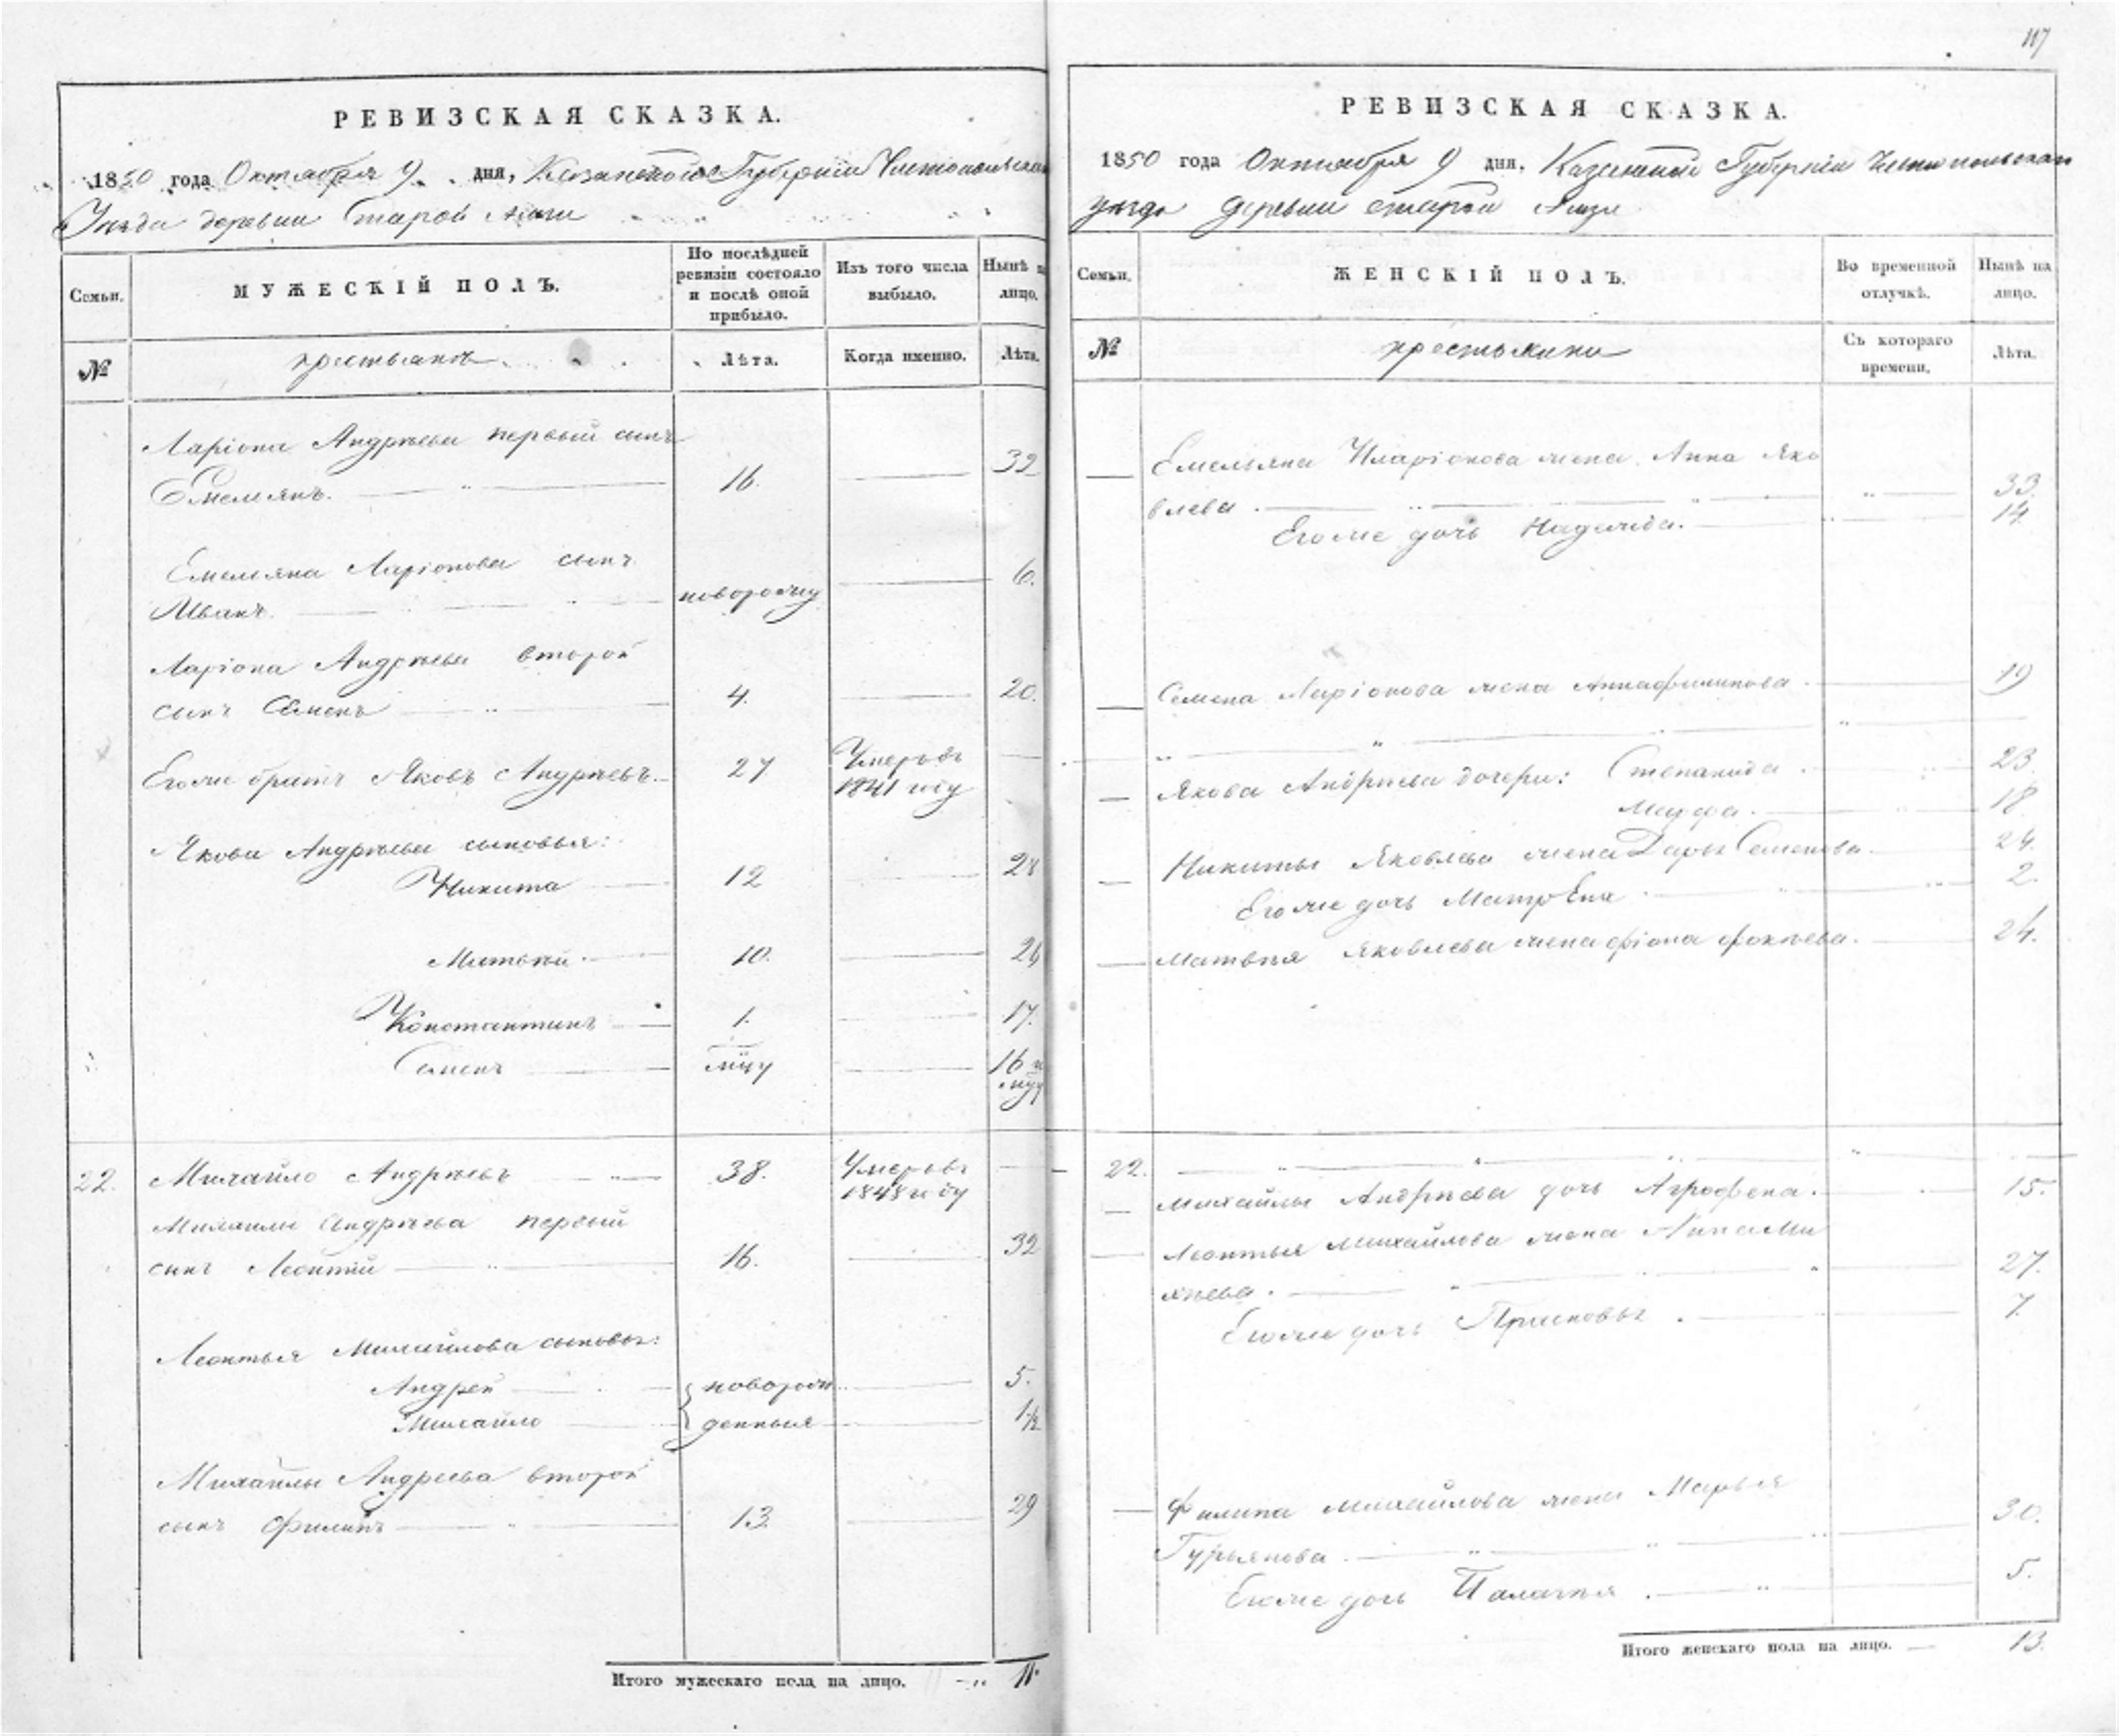 РЕВИЗСКАЯ СКАЗКА.
1850 года Октября 9 дня, Казанской Губернии Чистопольскаго
Уѣзда деревни Старой
Семьи.
МУЖЕСКІЙ ПОЛЪ.
По послѣдней ревизіи состояло и послѣ оной прибыло.
Изъ того числа выбыло.
Нынѣ на лицо.
№
крестьянъ
Лѣта.
Когда именно.
Лѣта.
Ларіона Андрѣева первый сынъ
Емельянъ. 16. 32
Емельяна Ларіонова сынъ
Иванъ. новорожд 6.
Ларіона Андрѣева второй
сынъ Семенъ 4. 20.
Его же братъ Яковъ Андрѣевъ. 27 Умеръ въ
1841 году
Якова Андрѣева сыновья:
Никита 12 28
Матвѣй 10. 26
Константинъ 1. 17.
Семенъ мцу 16 и
мцу
22. Михайло Андрѣевъ 38. Умеръ въ
1848 году
Михайлы Андрѣева первый
сынъ Леонтій 16. 32
Леонтья Михайлова сыновья:
Андрей новорож 5.
Михайло денныя 1½
Михайлы Андреева второй
сынъ Филипъ 13. 29
Итого мужескаго пола на лицо. 11.
117
РЕВИЗСКАЯ СКАЗКА.
1850 года Октября 9 дня, Казанской Губерніи Чистопольскаго
уѣзда деревни старой
Семьи.
ЖЕНСКІЙ ПОЛЪ.
Во временной отлучкѣ.
Нынѣ на лицо.
№
крестьянки
Съ котораго времени.
Лѣта.
Емельяна Иларіонова жена Анна Яко
влева 33.
Его же дочь Надежда. 14.
Семена Ларіонова жена Анна Филипова 19
Якова Андрѣева дочери: Степанида 23.
Марфа. 18.
Никиты Яковлева жена Дарья Семенова 24.
Его же дочь Матрена 2.
Матвѣя Яковлева жена Фіона Фокѣева. 24.
22.
Михайлы Андрѣева дочь Агрофена. 15.
Леонтья Михайлова жена Анна Ми
хѣева. 27.
Его же дочь Прасковья 7.
Филипа Михайлова жена Марья
Гурьянова 30.
Его же дочь Палагѣя 5.
Итого женскаго пола на лицо. 13.